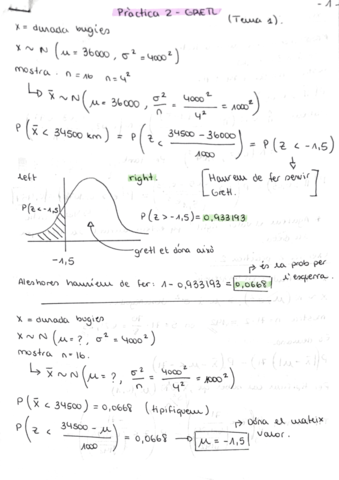 - 1 -
Pràctica 2 - GRETL (Tema 1).
x = durada bugies
x ~ N (μ = 36000, σ² = 4000²)
mostra n = 16 n = 4²
↳ x̄ ~ N (μ = 36000, σ²/n = 4000²/4² = 1000²)
P (x̄ < 34500 km) = P (z < (34500 - 36000)/1000) = P (z < -1,5)
↓
[Haurem de fer servir Gretl.]
left right.
P(z < -1,5) P(z > -1,5) = 0,933193
gretl et dóna això
-1,5
↗ és la prob per l'esquerra.
Aleshores hauríem de fer: 1 - 0,933193 = 0,0668
x = durada bugies
x ~ N (μ = ?, σ² = 4000²)
mostra n = 16.
↳ x̄ ~ N (μ = ?, σ²/n = 4000²/4² = 1000²)
P (x̄ < 34500) = 0,0668 (tipifiquem)
P (z < (34500 - μ)/1000) = 0,0668 → μ = -1,5
↗ Dóna el mateix valor.